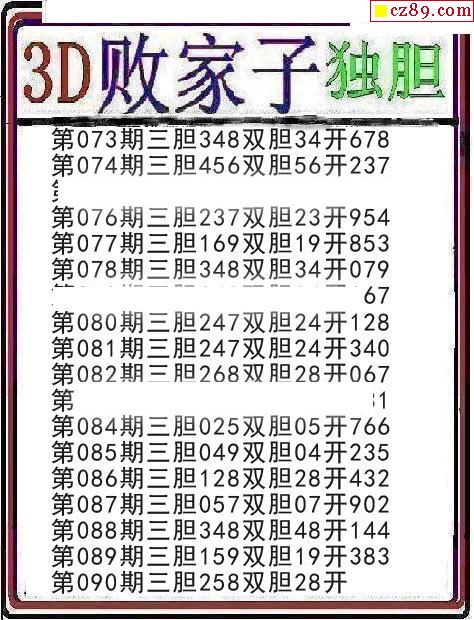 cz89.com
3D败家子独胆
第073期三胆348双胆34开678
第074期三胆456双胆56开237
第076期三胆237双胆23开954
第077期三胆169双胆19开853
第078期三胆348双胆34开079
67
第080期三胆247双胆24开128
第081期三胆247双胆24开340
第082期三胆268双胆28开067
第
第084期三胆025双胆05开766
第085期三胆049双胆04开235
第086期三胆128双胆28开432
第087期三胆057双胆07开902
第088期三胆348双胆48开144
第089期三胆159双胆19开383
第090期三胆258双胆28开